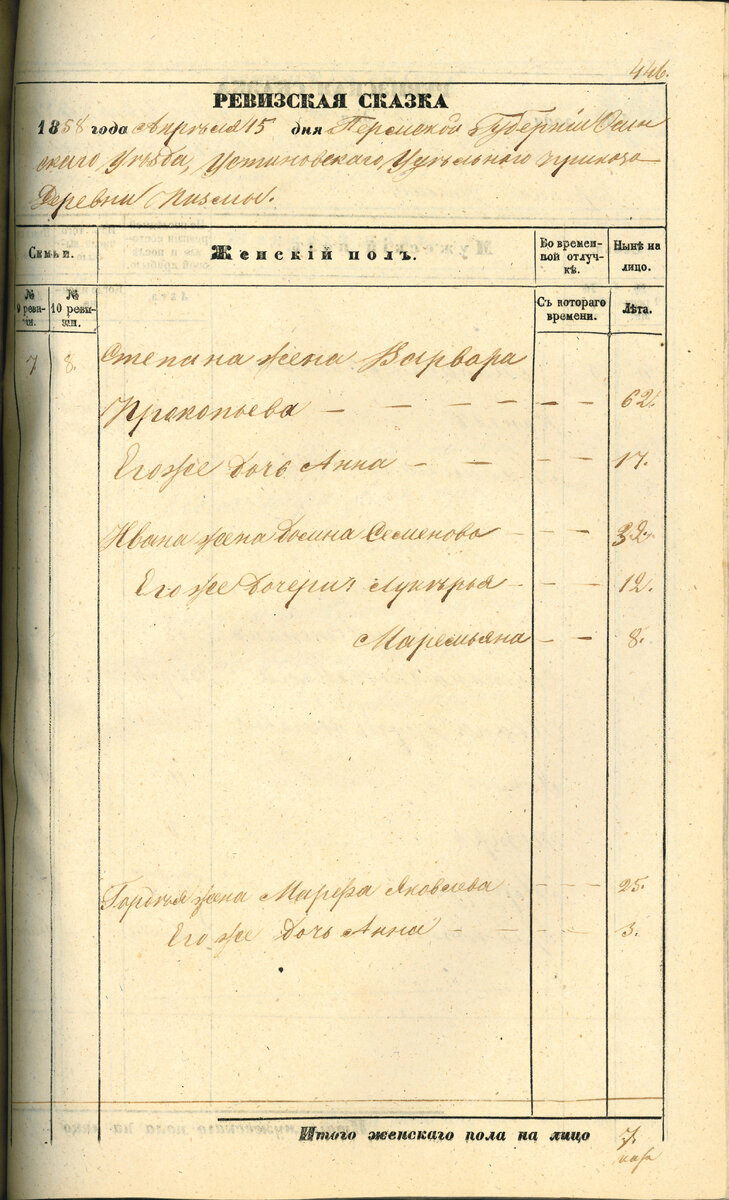 446.
РЕВИЗСКАЯ СКАЗКА
1858 года Апрѣля 15 дня Пермской Губерніи Осин
скаго Уѣзда, Устиновскаго Удѣльного приказа
Деревни Пизмы.
Семьи. Женскій полъ. Во временной отлучкѣ. Нынѣ на лицо.
№ 9 ревизіи. № 10 ревизіи. Съ котораго времени. Лѣта.
7 8. Степана жена Варвара
Прокопьева — — — — — — 62.
Его же дочь Анна — — — — 17.
Ивана жена Домина Семенова — — — 32.
Его же дочери: Лукѣрья — — — 12.
Маремьяна — — 8.
Гордѣя жена Марфа Яковлева — — — 25.
Его же дочь Анна — — — — — 3.
Итого женскаго пола на лицо 7.